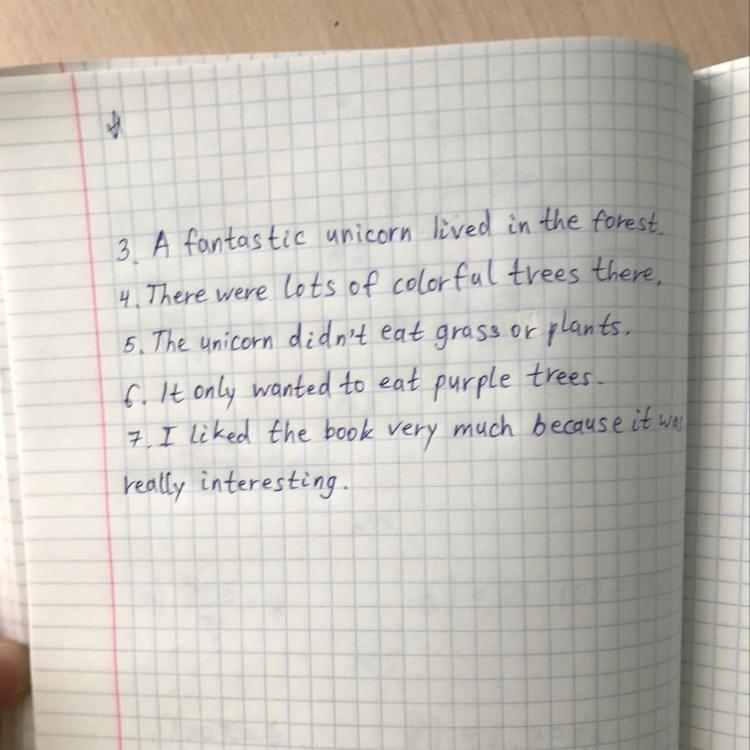 3. A fantastic unicorn lived in the forest.
4. There were lots of colorful trees there.
5. The unicorn didn't eat grass or plants.
6. It only wanted to eat purple trees.
7. I liked the book very much because it was
really interesting.